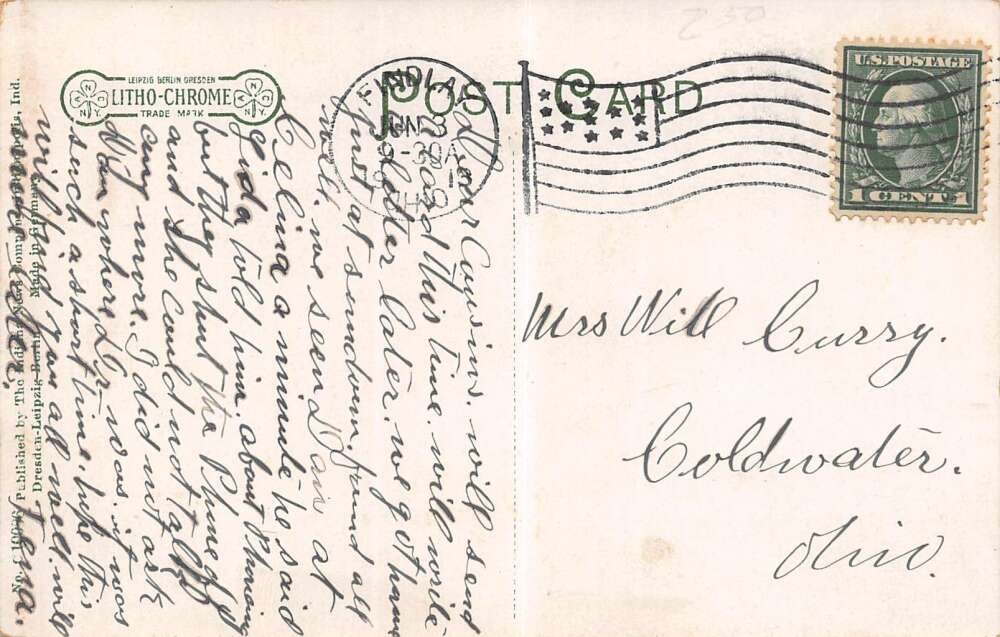 LEIPZIG BERLIN DRESDEN
LITHO-CHROME
TRADE MARK
N.Y.
N.Y.
POST CARD
FINDLAY
JUN 3
9-30A
OHIO
U.S. POSTAGE
1 CENT 1
Mrs Will Curry.
Coldwater.
Ohio.
Dear Cousins. will send
a card this time. will write
a letter later. we got home
just at sundown, found all
well. we seen Dan at
Celina a minute he said
Gida told him about Phoning
but they shut the Phone off
and she could not talk
any more. I did not ask
Dan where Gr was. it was
such a short time. hope this
will find you all well. will
Lena.
No. C 10066 Published by The Indiana News Company, Indianapolis, Ind.
Dresden-Leipzig-Berlin Made in Germany